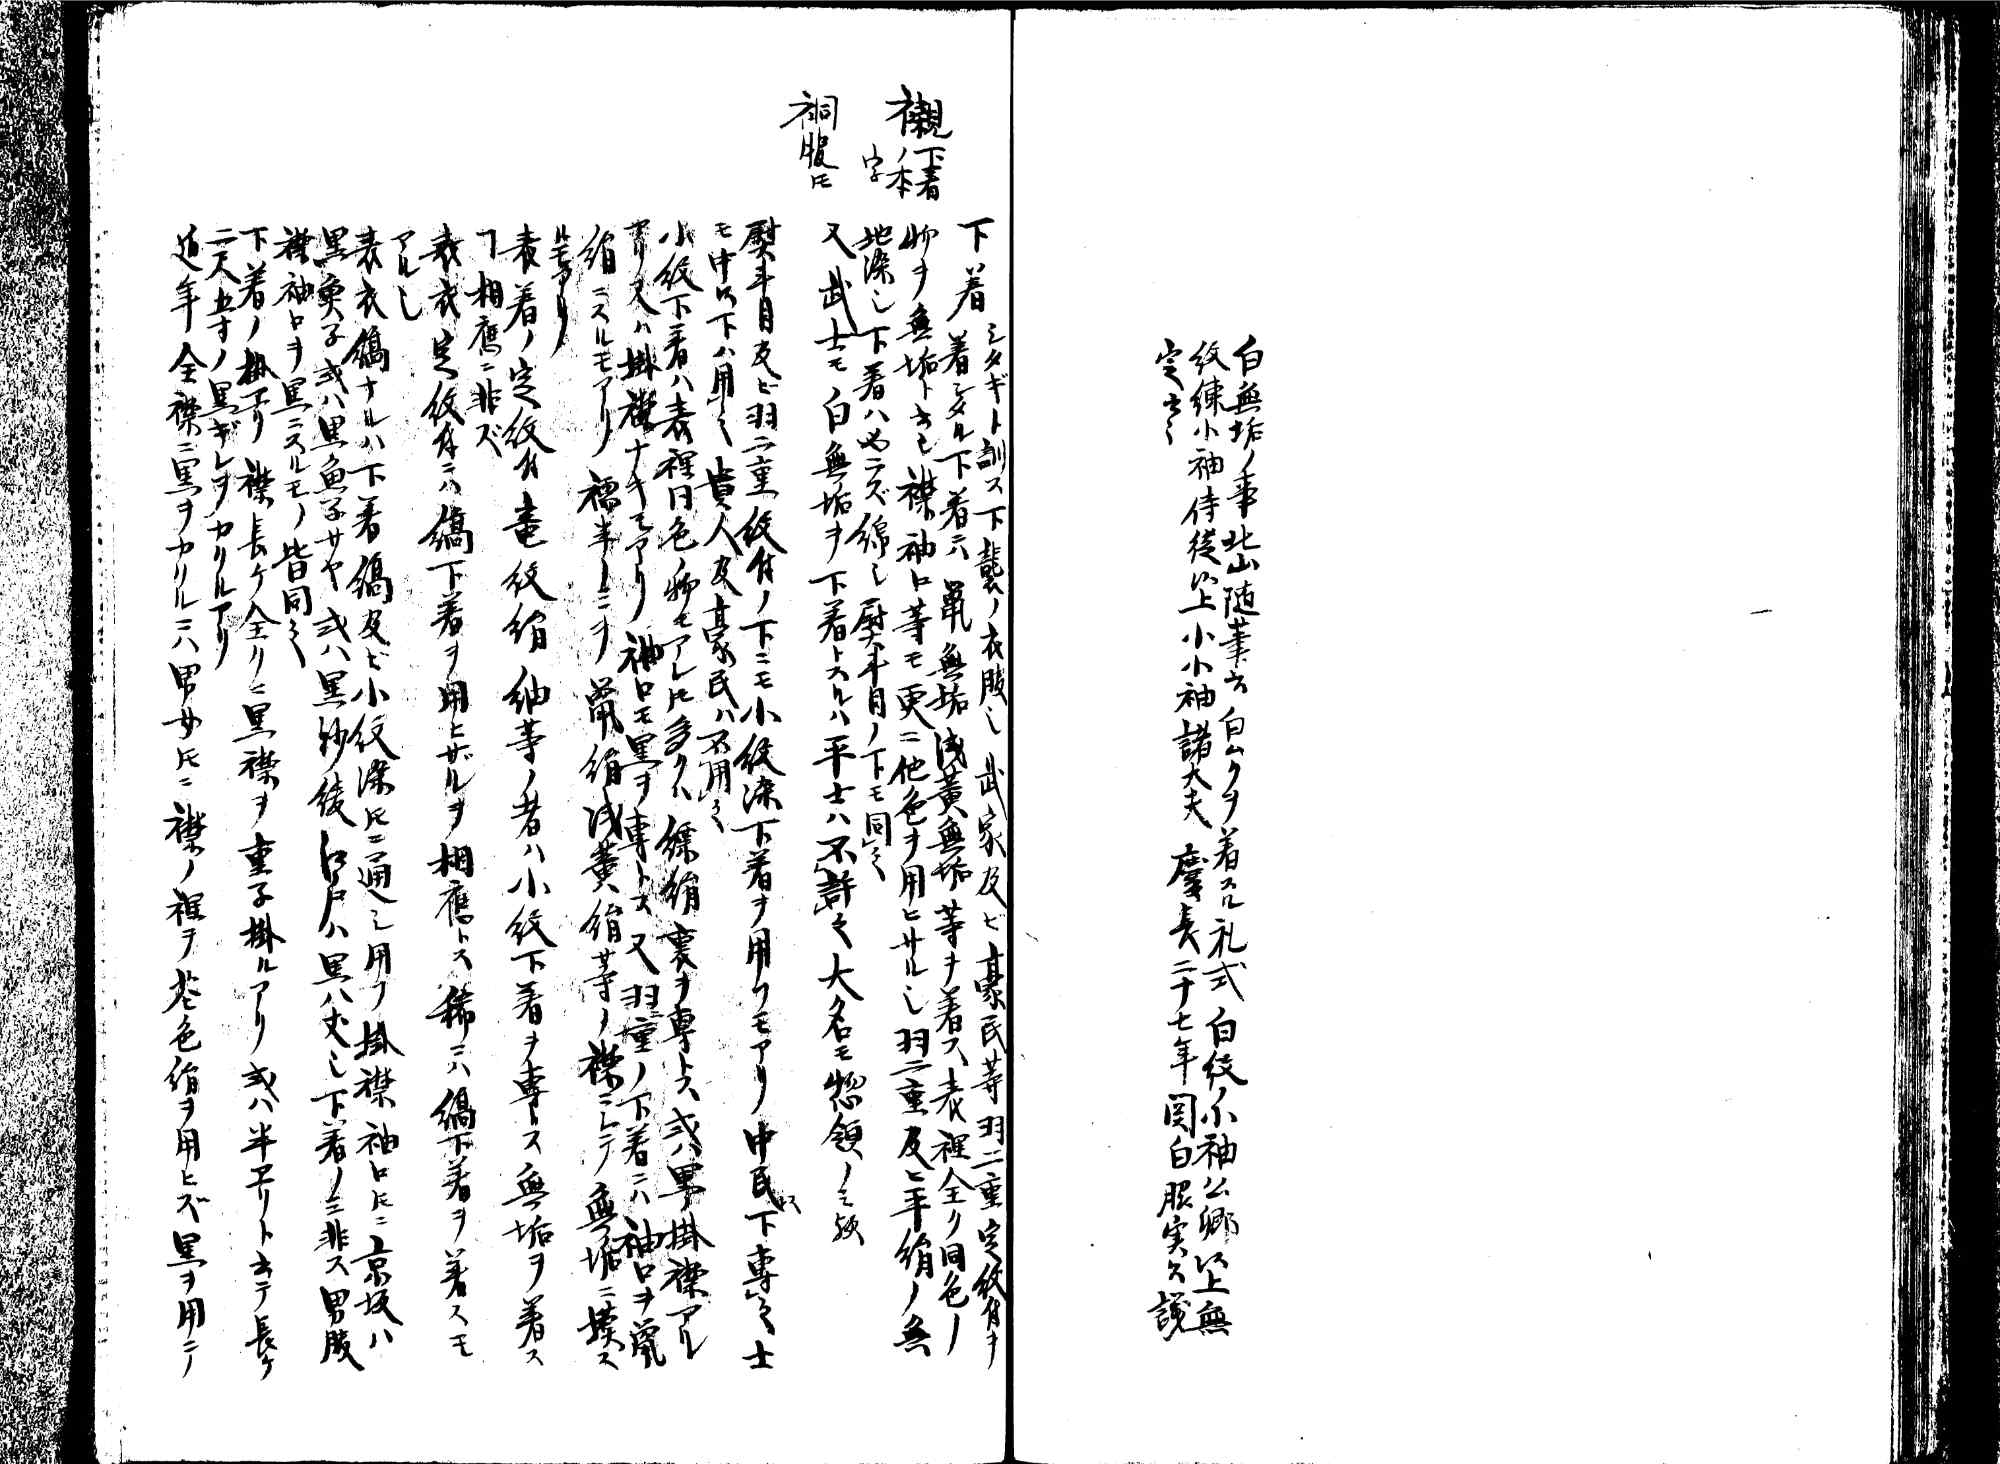 白無垢ノ事北山随筆云白ムクヲ着スル礼式白紋ノ小袖公卿以上無
紋練小袖侍従以上小小袖諸大夫慶長二十七年関白照実公議
定云々
襯 下着ノ本字
裥服トモ
下着 シタギト訓ス下襲ノ衣服也武家及ビ豪民等羽二重定紋付ヲ
着シタル下着ニハ鼠無垢浅黄無垢等ヲ着ス表裡全ク同色ノ
物ヲ無垢ト云也襟袖口等モ更ニ他色ヲ用ヒザル也羽二重及ヒ平絹ノ無
地染也下着ハ必ラズ綿也熨斗目ノ下モ同之
又武士モノ白無垢ヲ下着トスルハ平士ハ不許之大名モ惣領ノミ歟
熨斗目及ビ羽二重紋付ノ下ニモ小紋染下着ヲ用フモアリ中民以下専之士
モ中以下ハ用之貴人及豪民ハ不用之
小紋下着ハ表裡同色ノ物モアレトモ多クハ縹絹裏ヲ専トス或ハ黒掛襟アル
アリ又ハ掛襟ナキモアリ袖口モ黒ヲ専トス又羽二重ノ下着ニハ袖口ヲ鼠
絹ニスルモアリ襦半ノミヲ鼠絹浅黄絹等ノ襟ニシテ無垢ニ擬ス
ルモアリ
表着ノ定紋付竜紋絹紬等ノ者ハ小紋下着ヲ専トス無垢ヲ着ス
ヿ相應ニ非ズ
表衣定紋付ニハ縞下着ヲ用ヒザルヲ相應トス稀ニハ縞下着ヲ着スモ
アル也
表衣縞ナルハ下着縞及ビ小紋染トモニ通シ用フ掛襟袖口トモニ京坂ハ
黒奥子或ハ黒魚子サヤ或ハ黒紗綾江戸ハ黒八丈也下着ノミ非ス男服
襟袖口ヲ黒ニスルモノ皆同之
下着ノ掛ヱリ襟長ケ全クニ黒襟ヲ重子掛ルアリ或ハ半ヱリト云テ長ケ
二尺五寸ノ黒ギレヲカクルアリ
近年全襟ニ黒ヲカクルニハ男女トモニ襟ノ裡ヲ花色絹ヲ用ヒズ黒ヲ用ニ